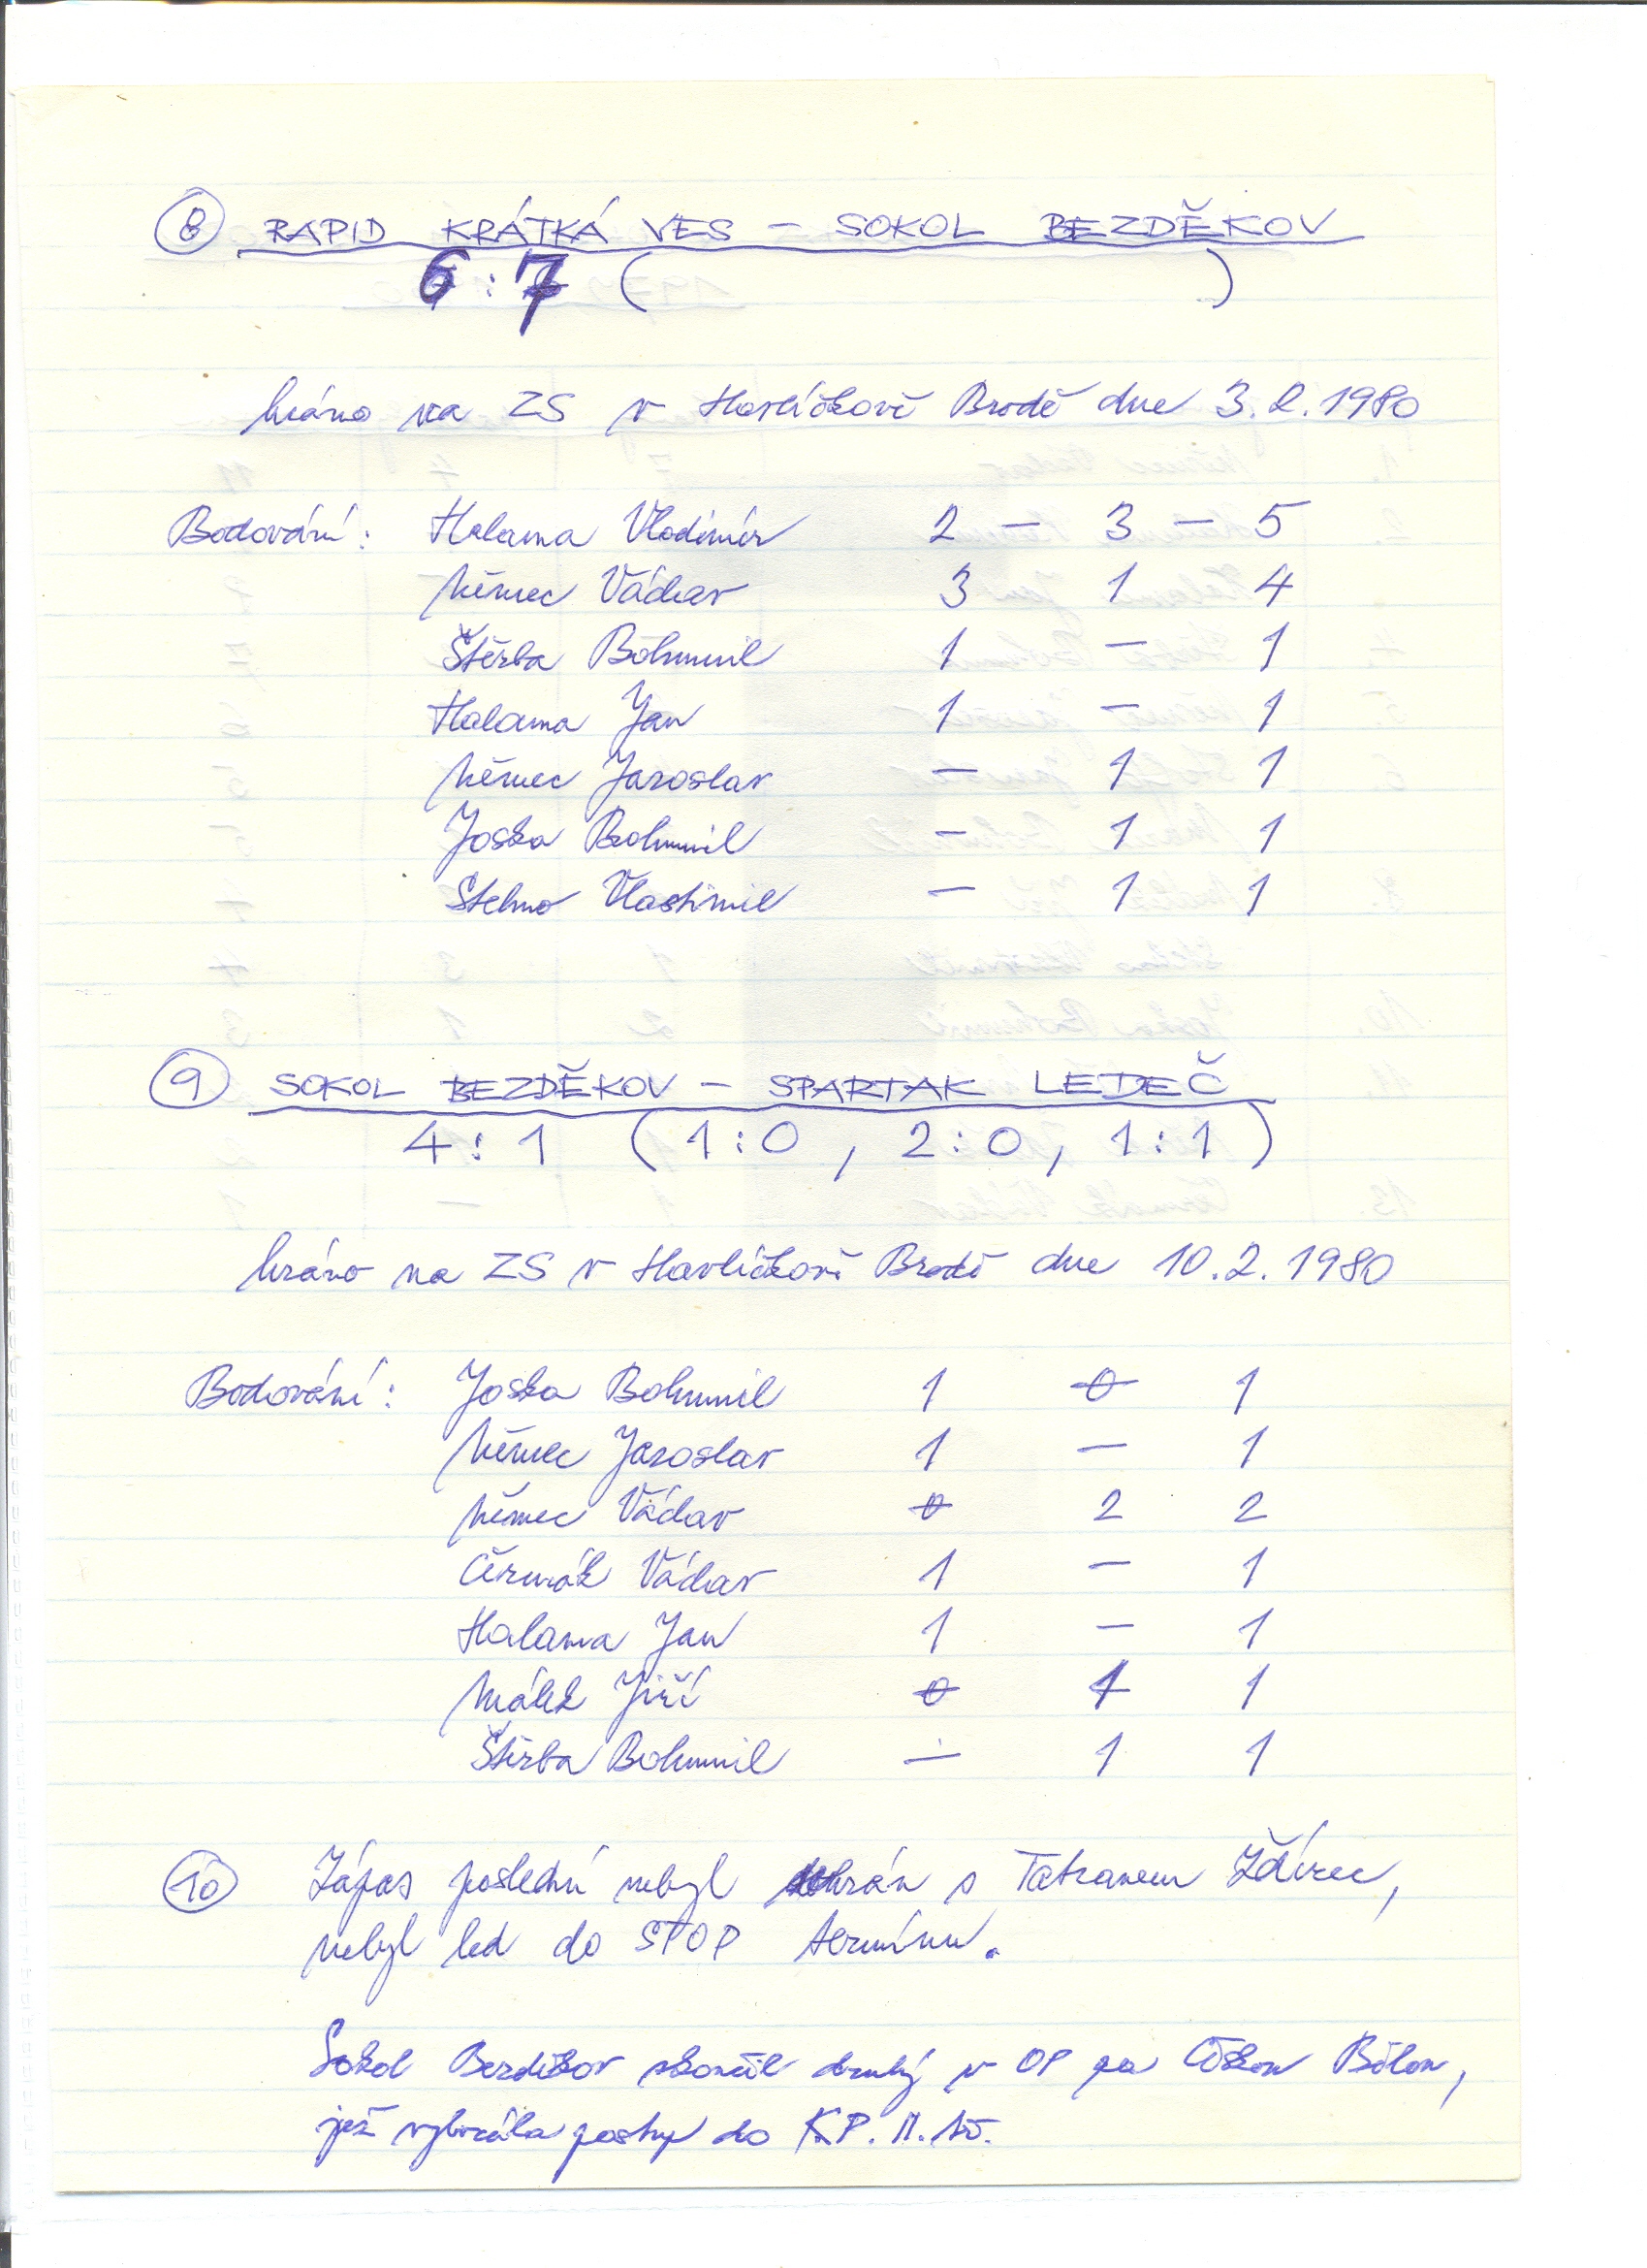 8 RAPID KRÁTKÁ VES – SOKOL BEZDĚKOV
6:7 ( )
hráno na ZS v Havlíčkově Brodě dne 3.2.1980
Bodování: Halama Vladimír 2 – 3 – 5
Němec Václav 3 1 4
Štěrba Bohumil 1 – 1
Halama Jan 1 – 1
Němec Jaroslav – 1 1
Joska Bohumil – 1 1
Stehno Vlastimil – 1 1
9 SOKOL BEZDĚKOV – SPARTAK LEDEČ
4:1 (1:0, 2:0, 1:1)
hráno na ZS v Havlíčkově Brodě dne 10.2.1980
Bodování: Joska Bohumil 1 0 1
Němec Jaroslav 1 – 1
Němec Václav 0 2 2
Čermák Václav 1 – 1
Halama Jan 1 – 1
Málek Jiří 0 1 1
Štěrba Bohumil – 1 1
10 Zápas poslední nebyl sehrán s Tatranem Ždírec,
nebyl led do STOP termínu.
Sokol Bezděkov skončil druhý v OP za Českou Bělou,
jež vybrala postup do KP. II. tř.